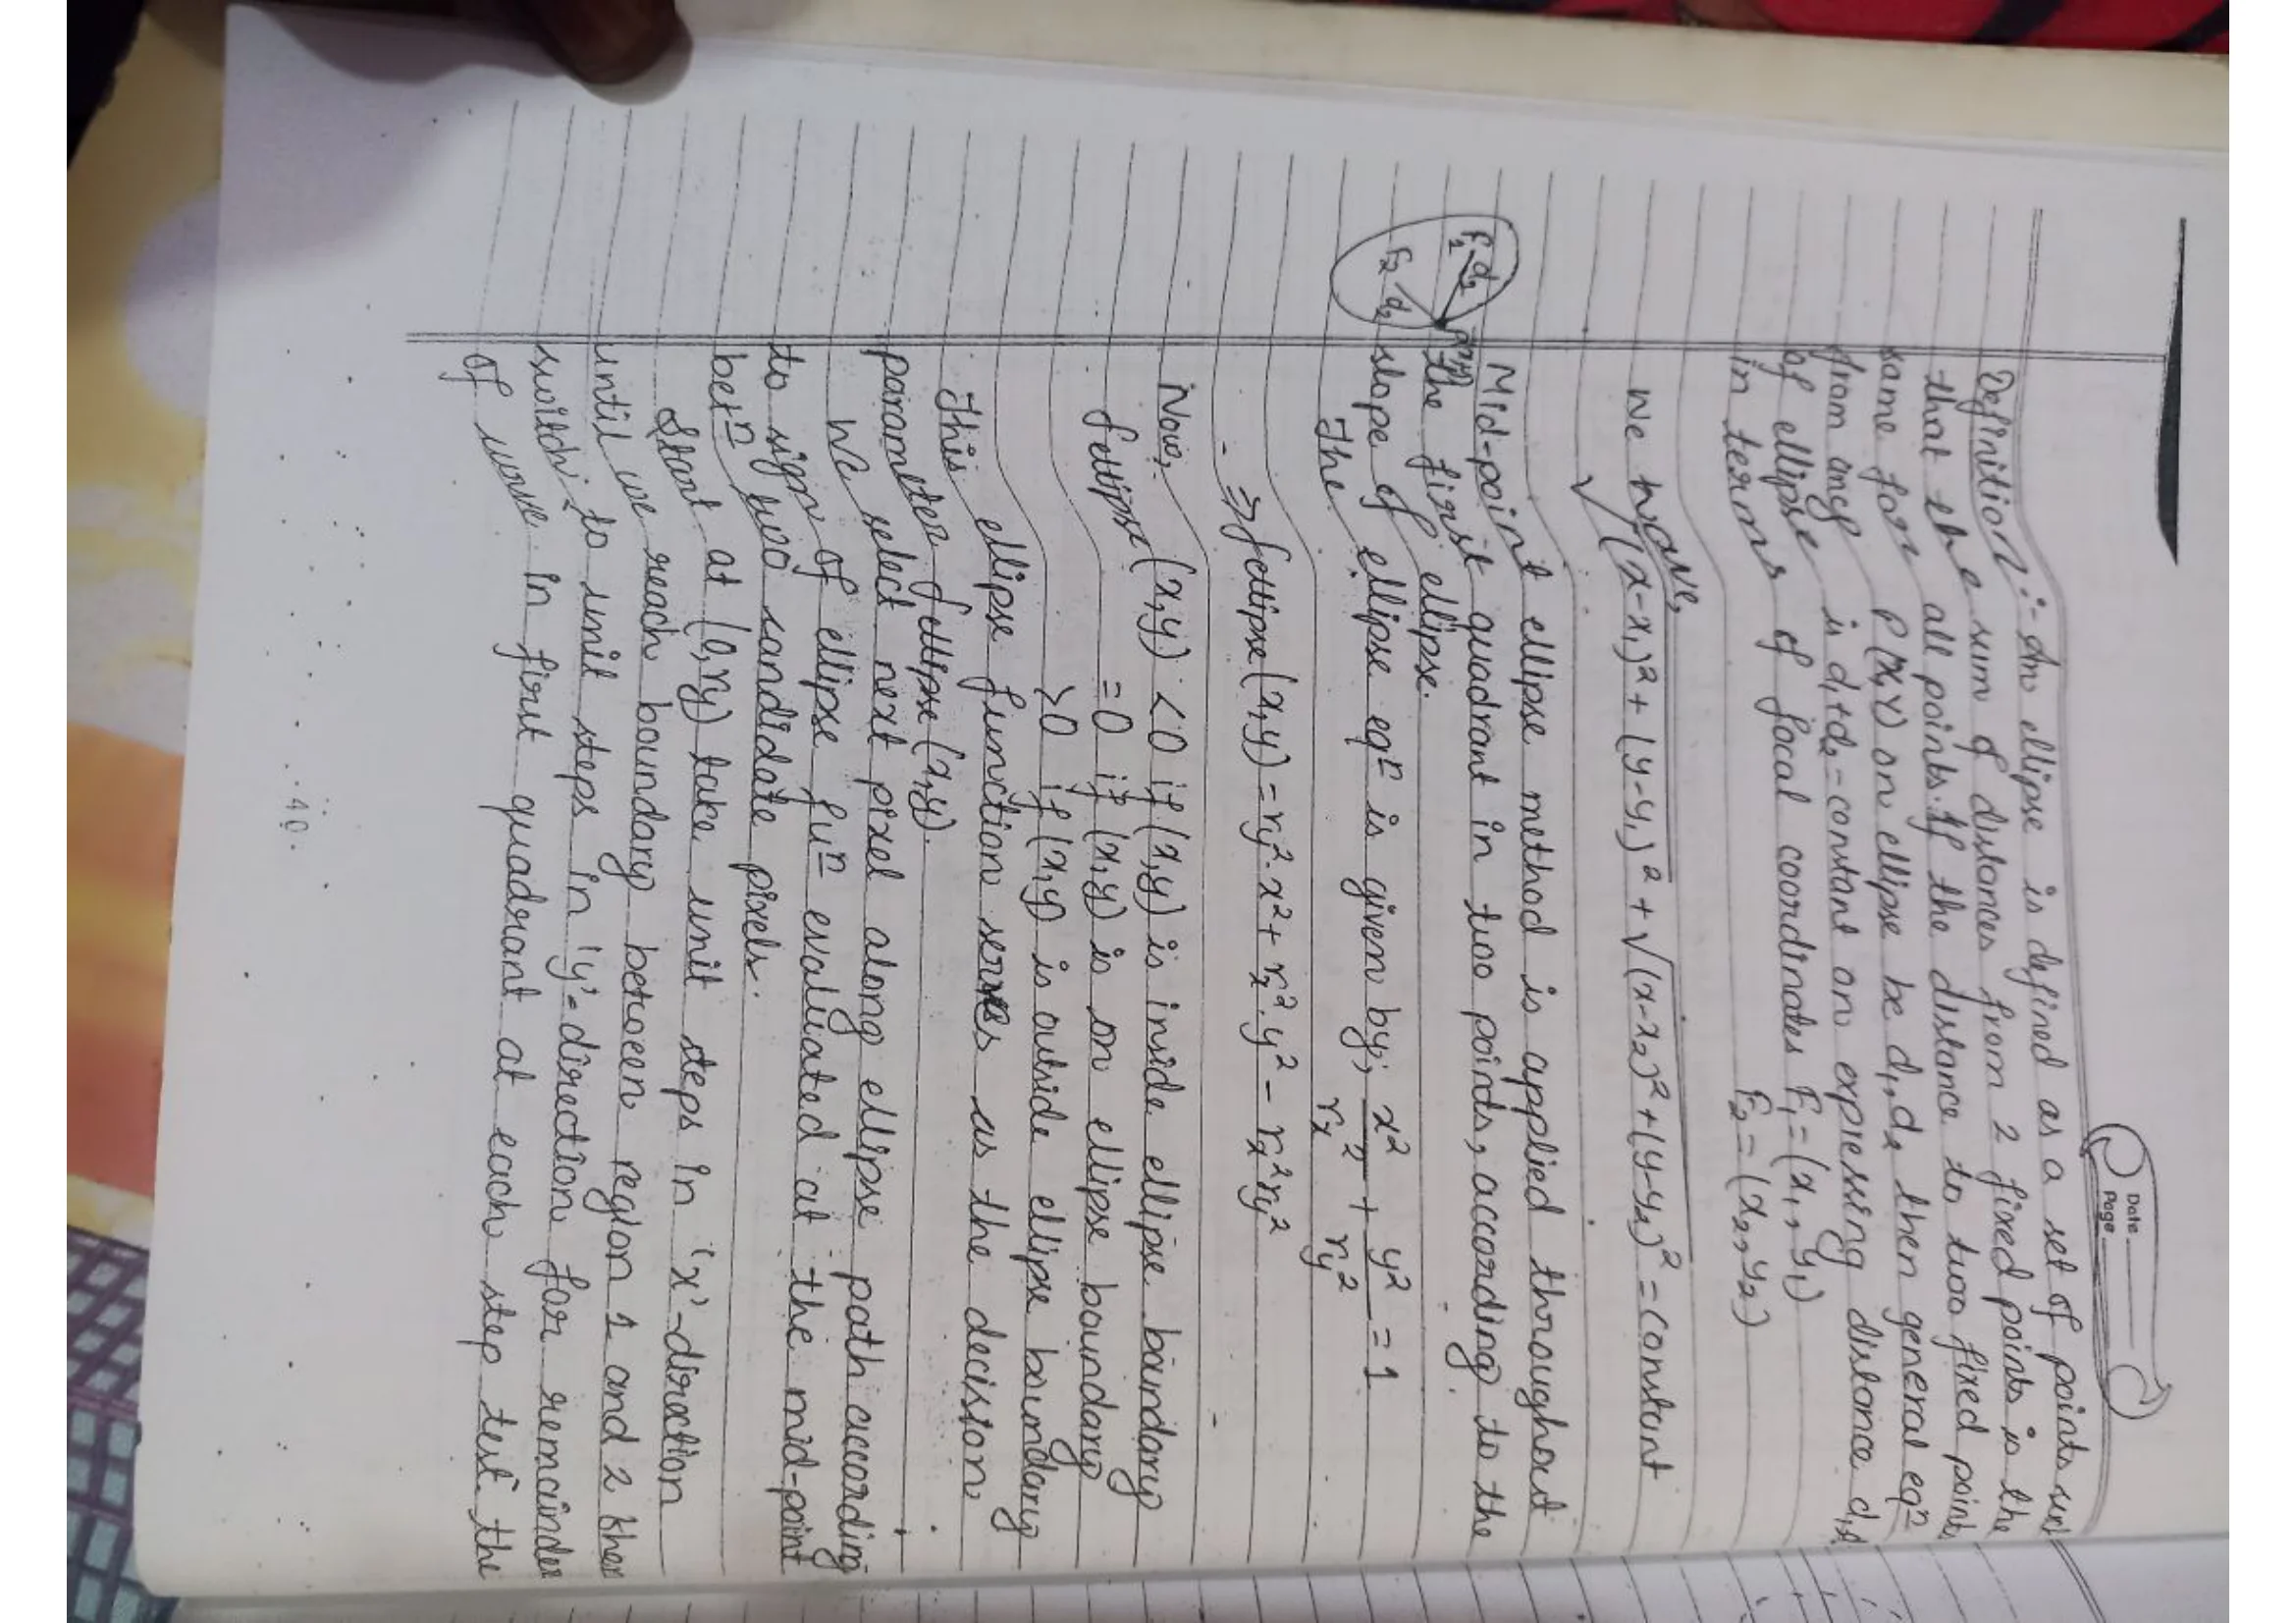 Date
Page
Definition :- An ellipse is defined as a set of points such
that the sum of distances from 2 fixed points is the
same for all points. If the distance to two fixed points
from any P(x,y) on ellipse be d₁, d₂ then general eqⁿ
of ellipse is d₁+d₂ = constant on expressing distance d₁,d
in terms of focal coordinates F₁ = (x₁, y₁)
F₂ = (x₂, y₂)
We have,
√(x-x₁)² + (y-y₁)² + √(x-x₂)² + (y-y₂)² = constant
Mid-point ellipse method is applied throughout
the first quadrant in two points, according to the
slope of ellipse.
F₁ d₁
F₂ d₂
The ellipse eqⁿ is given by; x²/rx² + y²/ry² = 1
⇒ fellipse (x,y) = ry².x² + rx².y² - rx²ry²
Now,
fellipse (x,y) <0 if (x,y) is inside ellipse boundary
=0 if (x,y) is on ellipse boundary
>0 if (x,y) is outside ellipse boundary
This ellipse function serves as the decision
parameter fellipse (x,y).
We select next pixel along ellipse path according
to sign of ellipse fuⁿ evaluated at the mid-point
betⁿ two candidate pixels.
Start at (0,ry) take unit steps in 'x'-direction
until we reach boundary between region 1 and 2 then
switch to unit steps in 'y'-direction for remainder
of curve in first quadrant at each step test the